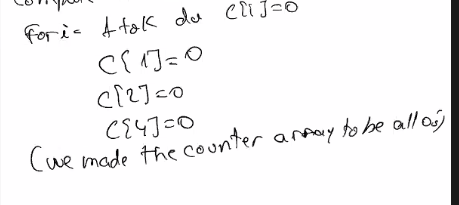 for i= 1 to K do C[i]=0
C[1]=0
C[2]=0
C[4]=0
(we made the counter array to be all 0s)